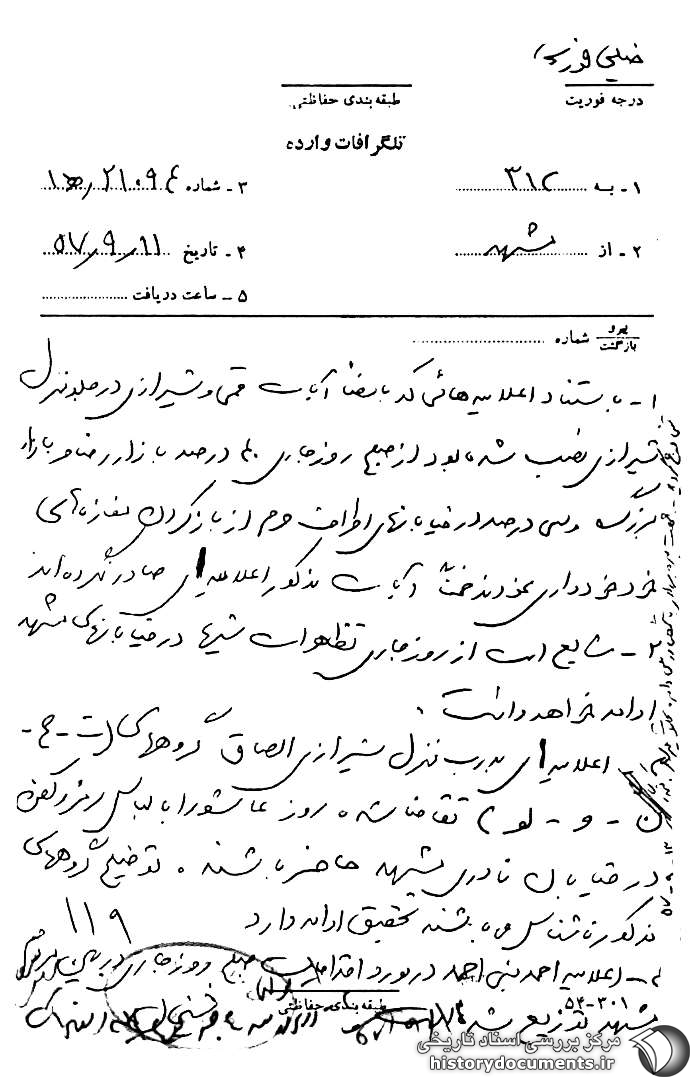 خیلی فوری
درجه فوریت
طبقه‌بندی حفاظتی
تلگرافات وارده
۱ - به ۳۱۲
۳ - شماره ۲۱۰۹۴
۲ - از مشهد
۴ - تاریخ ۵۷/۹/۱۱
۵ - ساعت دریافت
پیرو
بازگشت
شماره
۱- باستناد اعلامیه هائی که بامضاء آیات قمی و شیرازی در جلو منزل
شیرازی نصب شده بود از صبح روز جاری ۴۰ درصد بازار رضا و بازار
بزرگ وسی درصد در خیابانهای اطراف حرم از باز کردن مغازه‌های
خود خودداری نمودند ضمناً آیات مذکور اعلامیه‌ای صادر نکرده‌اند
۲- شایع است از روز جاری تظاهرات شبها در خیابانهای مشهد
ادامه خواهد داشت.
۳- اعلامیه‌ای بدرب منزل شیرازی الصاق گروههای (ت - ج -
ن - و - لو) تقاضا شده روز عاشورا با لباس رزم و کفن
در خیابان نادری مشهد حاضر باشند. توضیح گروههای
مذکور ناشناس میباشند تحقیق ادامه دارد
۱۱۹
۴- اعلامیه احمد بنی احمد در مورد اقدامات صبح روز جاری در بین مردم
مشهد توزیع شد
طبقه‌بندی حفاظتی
۵۴-۳۰۱
مرکز بررسی اسناد تاریخی
historydocuments.ir